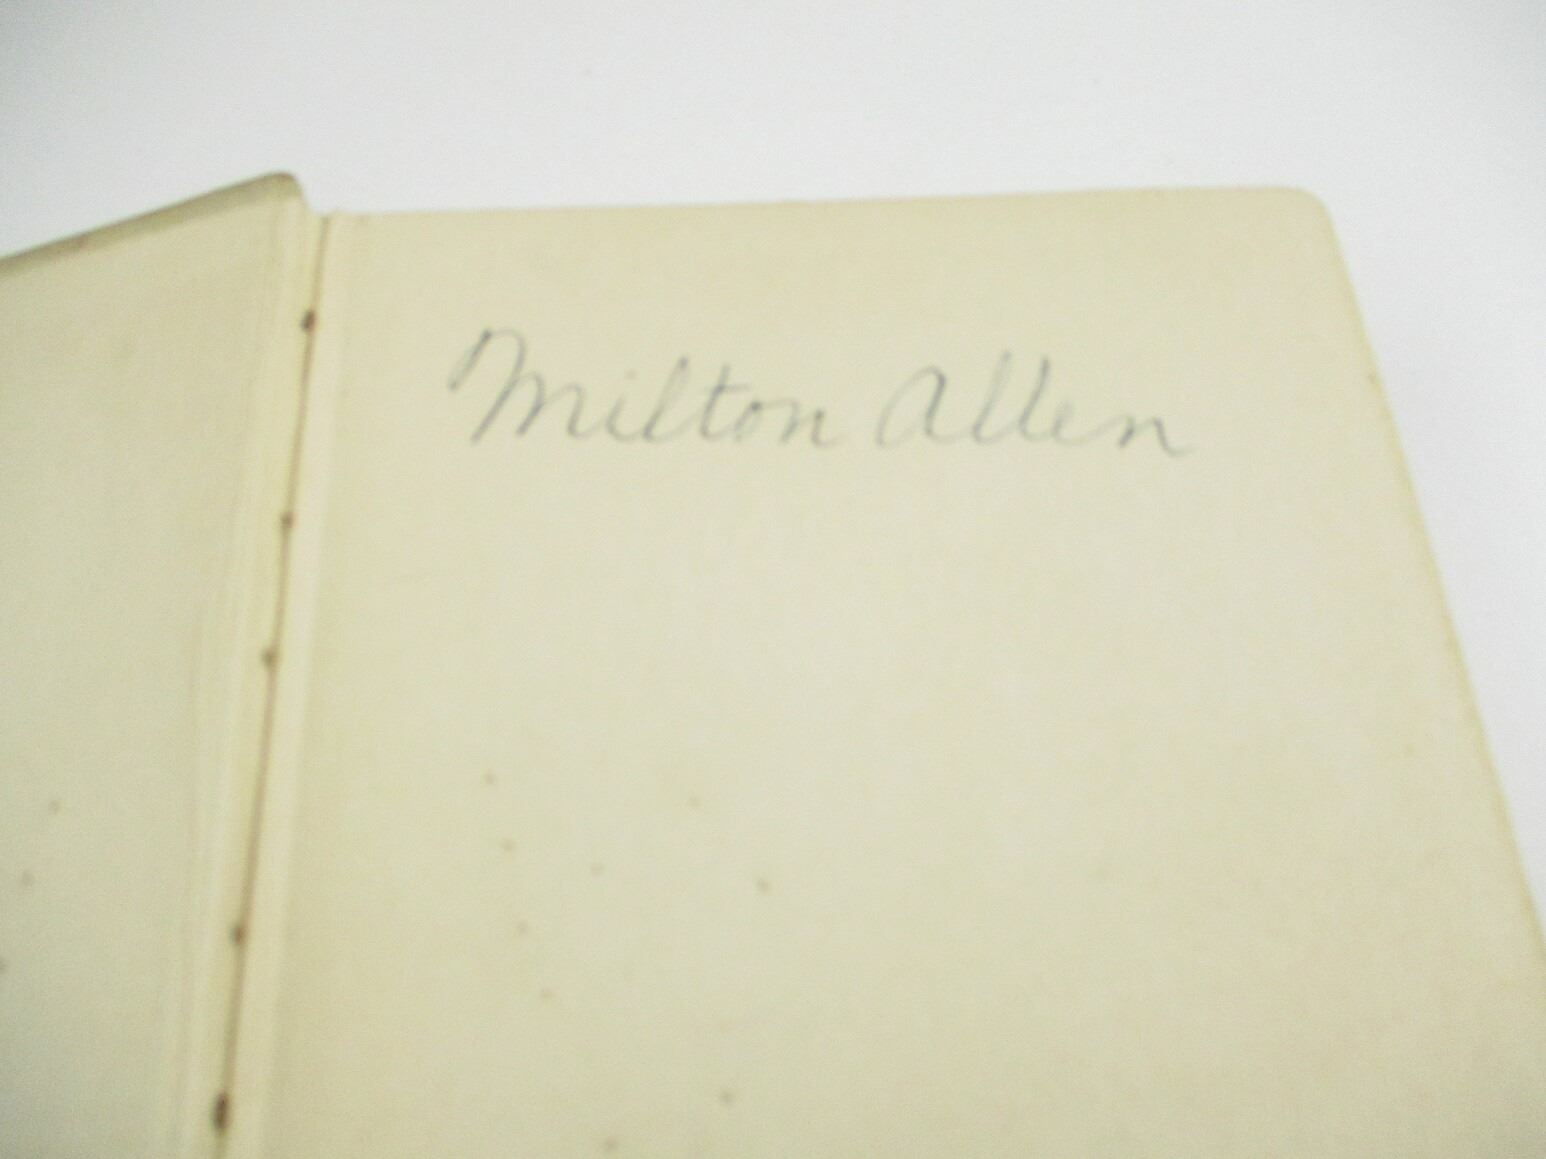 Milton Allen